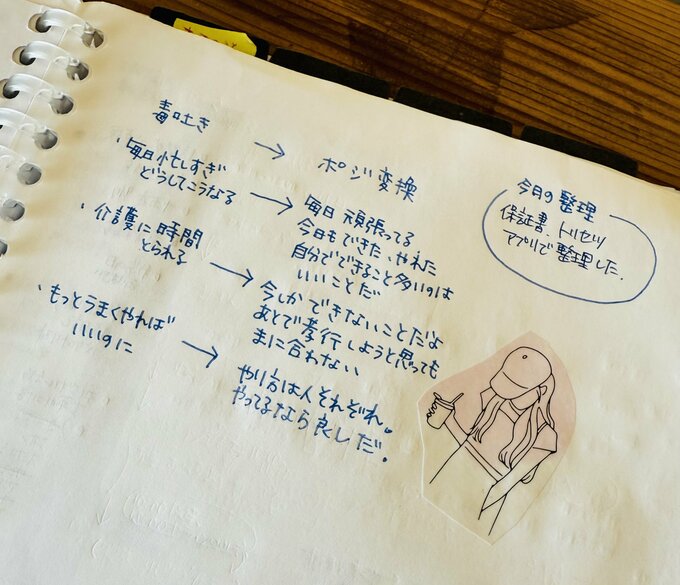 毒吐き → ポジ変換
・毎日忙しすぎ
どうしてこうなる
→ 毎日頑張ってる
今日もできた、やれた
自分でできること多いのは
いいことだ
・介護に時間
とられる
→ 今しかできないことだよ
あとで孝行しようと思っても
まに合わない
・もっとうまくやれば
いいのに
→ やり方は人それぞれ。
やってるなら良しだ。
今月の整理
保証書、トリセツ
アプリで整理した.